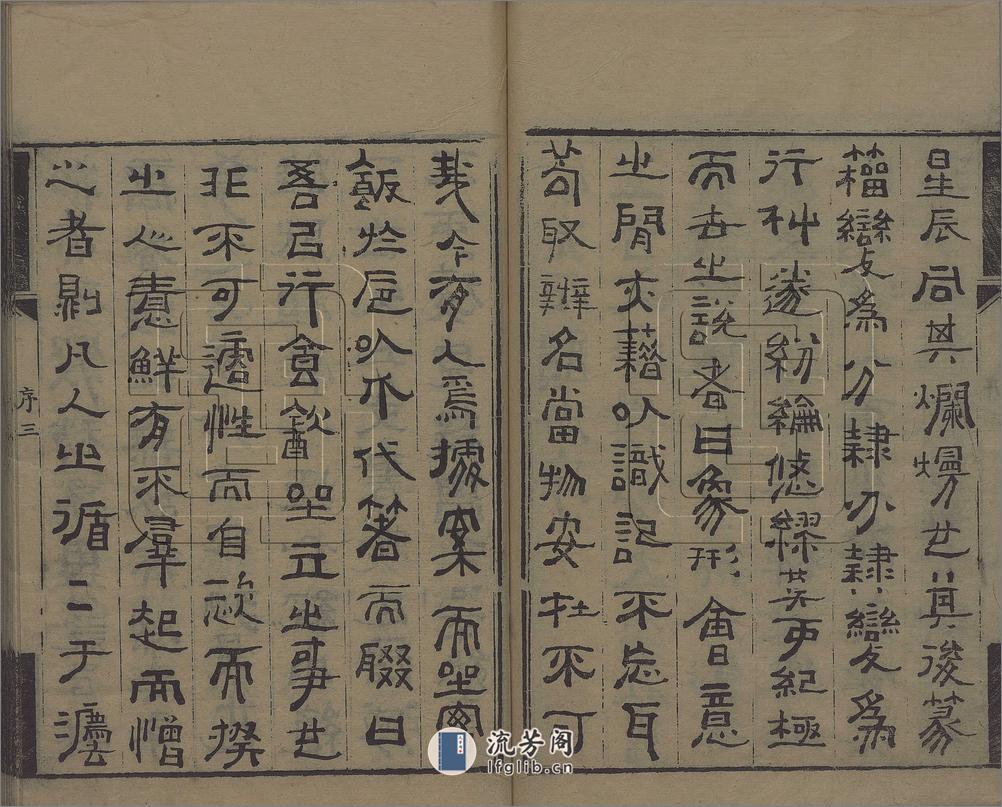 星辰同其爛熳也其後篆
籀變爲八分隸八分隸變爲
行草遂紛綸悠繆其可紀極
而世之說者曰象形會意
之間亦藉以識記不忘耳
苟取辨名當物安在不可
哉今有人焉據案而坐
飯於卮以爪代箸而歠曰
吾已行食飲坐立之事世
非不可適性而自
之心責鮮有不羣起而憎
之者則凡人之循二于灋
序三
流芳阁
lfglib.cn